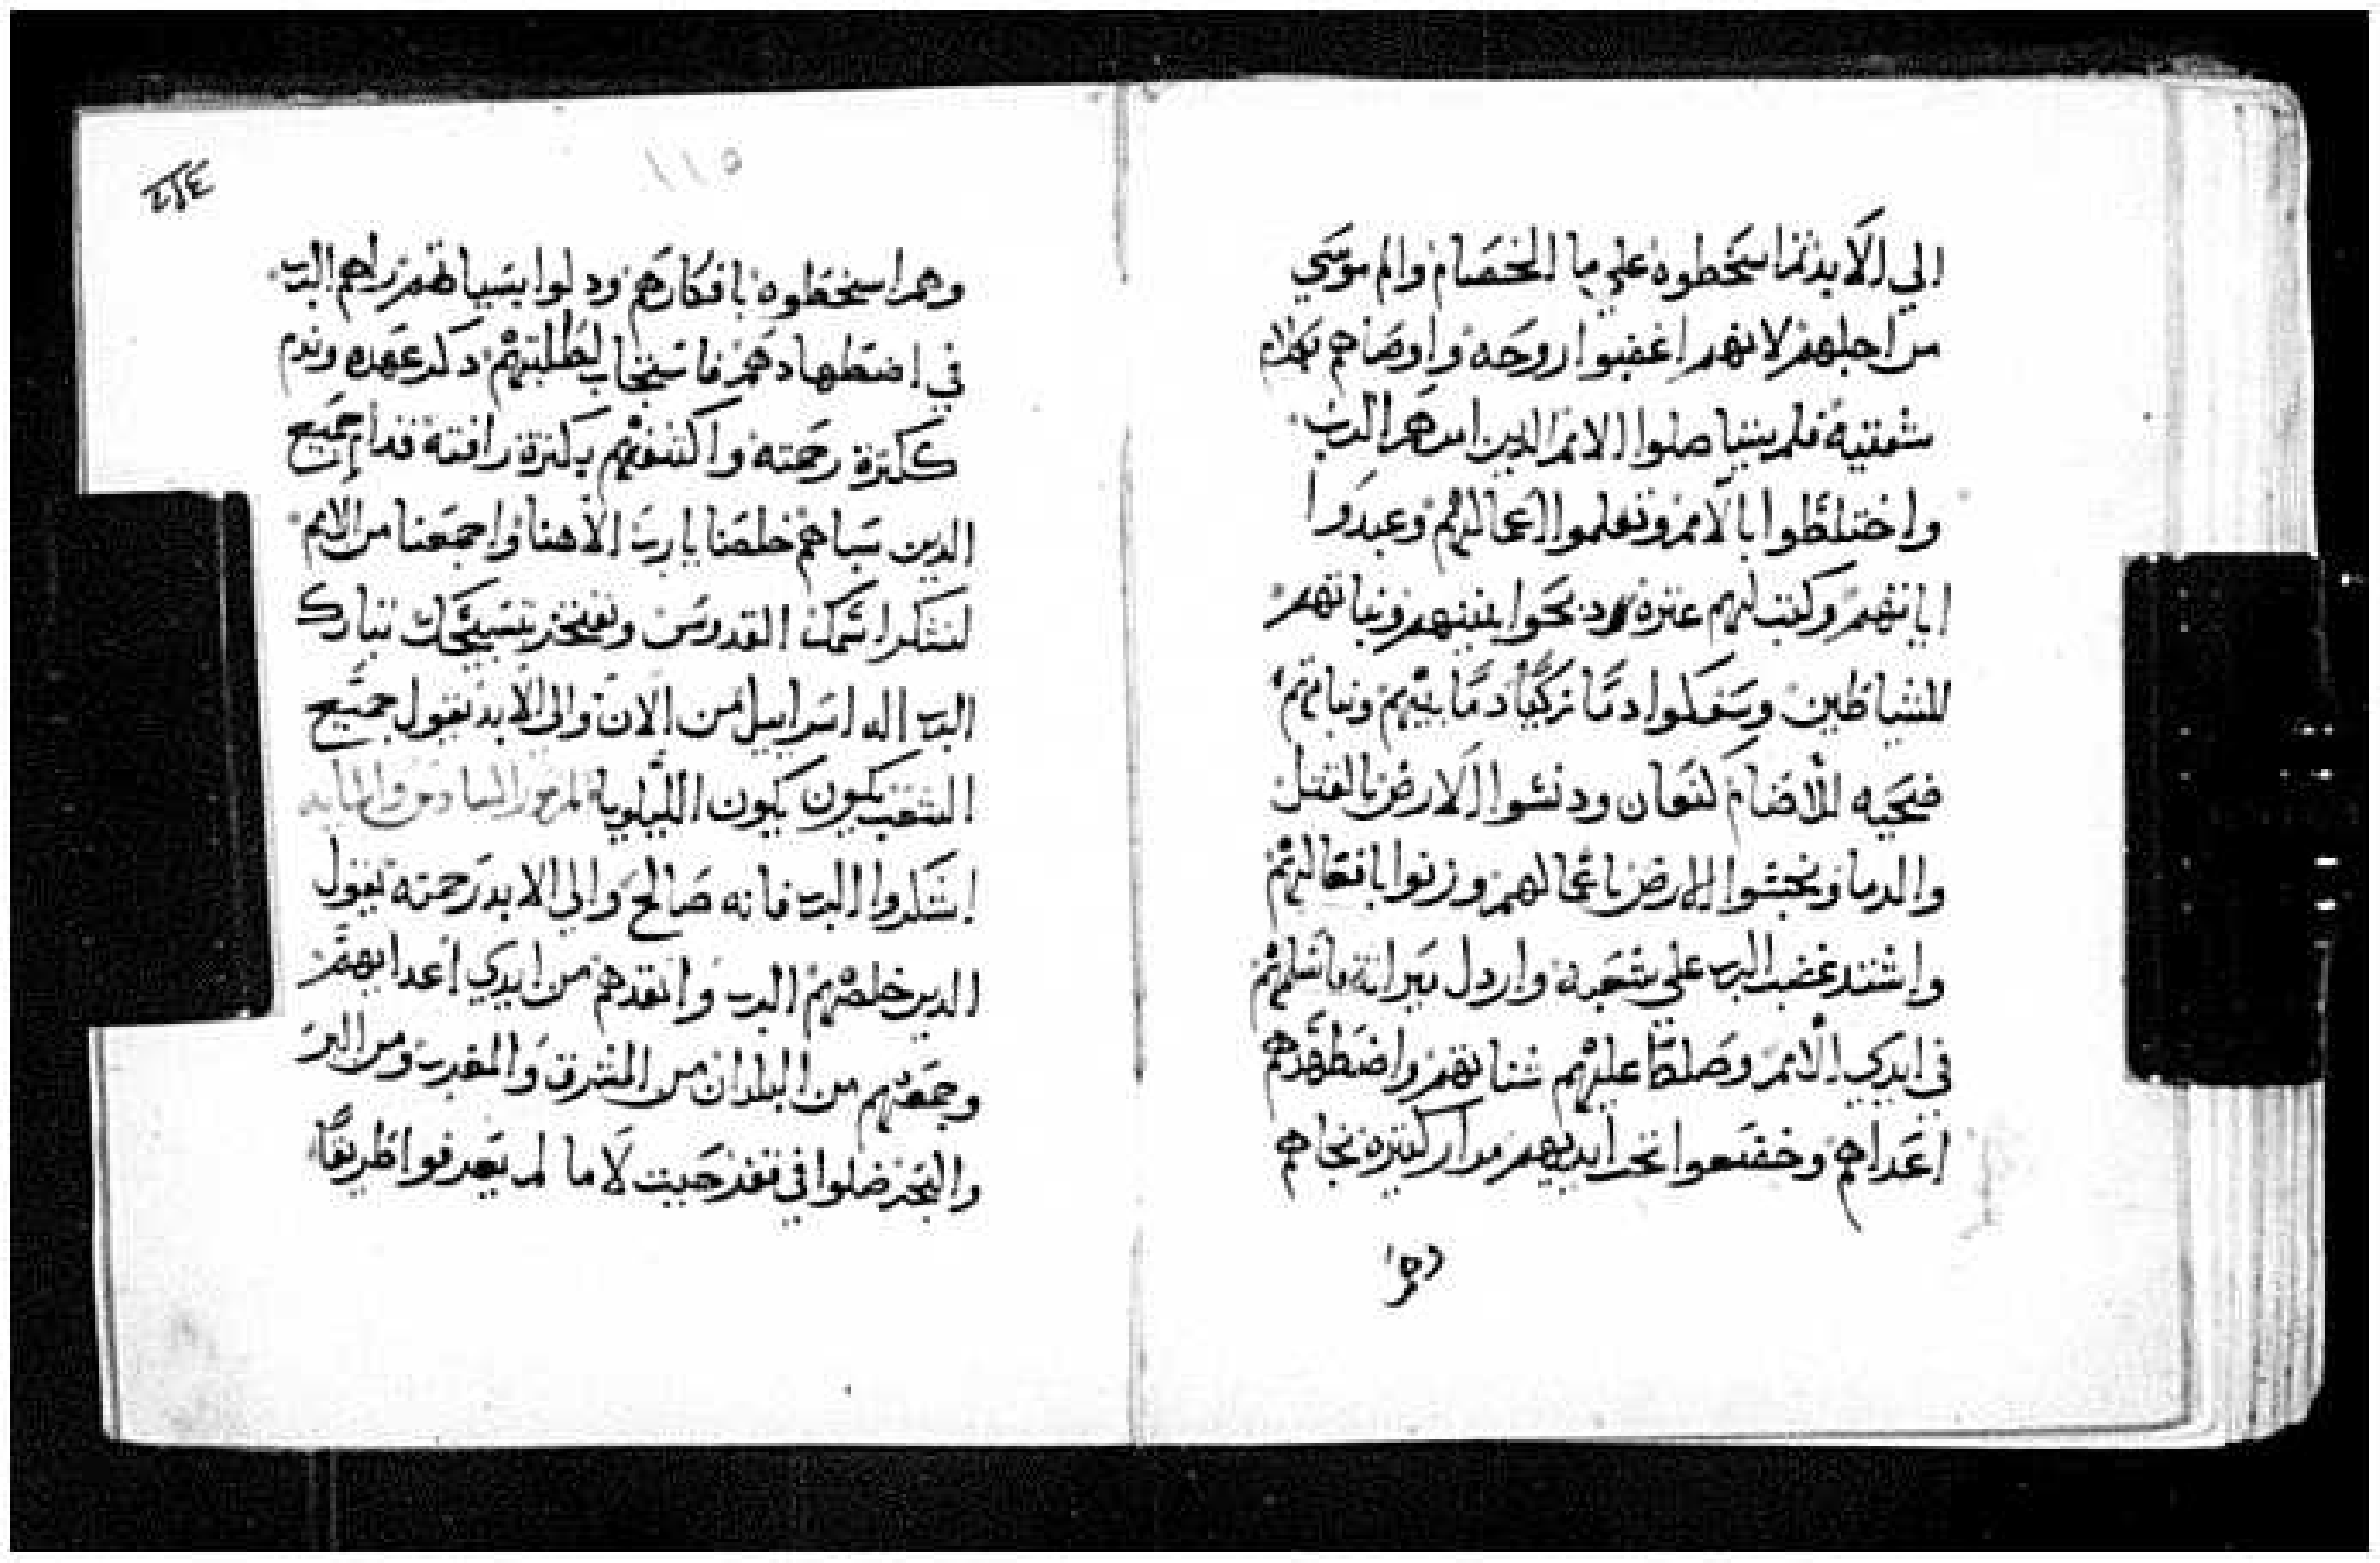 الي الابد ثم اسخطوه علي ما الخصام والم موسي
من اجلهم لانهم اغضبوا روحه واوصاهم بكلام
شفتيه فلم يبيا صلوا الامم الدين امرهم الرب
واختلطوا بالامم وتعلموا اعمالهم وعبدوا
اياتهم وكتب لهم عثرة ودبحوا بنيهم وبناتهم
للشياطين وسفكوا دما زكيا دما بنيهم وبناتهم
ضحيه للاصنام لنعان ودنسوا الارض بالقتل
والدما ونجسوا الارض باعمالهم وزنوا بافعالهم
واشتد غضب الرب علي شعبه واردل ميراته واسلمهم
في ايدي الامم وصلط عليهم شناتهم واضطهدهم
اعداهم وخضعوا تحت ايديهم مرار كثيره نجاهم
وهم اسخطوه بافكارهم ودلوا بسياتهم راهم الرب
في اضطهادهم فاستجاب لطلبتهم دكر عهده وندم
ككثرة رحمته واكتنفهم بكثرة رافته قدام جميع
الدين سباهم خلصنا يا رب الاهنا واجمعنا من الامم
لنشكر اسمك القدوس ونفتخر بتسبحتك تبارك
الرب اله اسراييل من الان والي الابد تقول جميع
الشعب يكون يكون الليلويا المزمور السادس والمايه
اشكروا الرب فانه صالح والي الابد رحمته تقول
الدين خلصهم الرب وانقدهم من ايدي اعدايهم
وجمعهم من البلدان من المشرق والمغرب ومن البر
والبحر ضلوا في قفز حيت لا ما لم يعرفوا طريقا